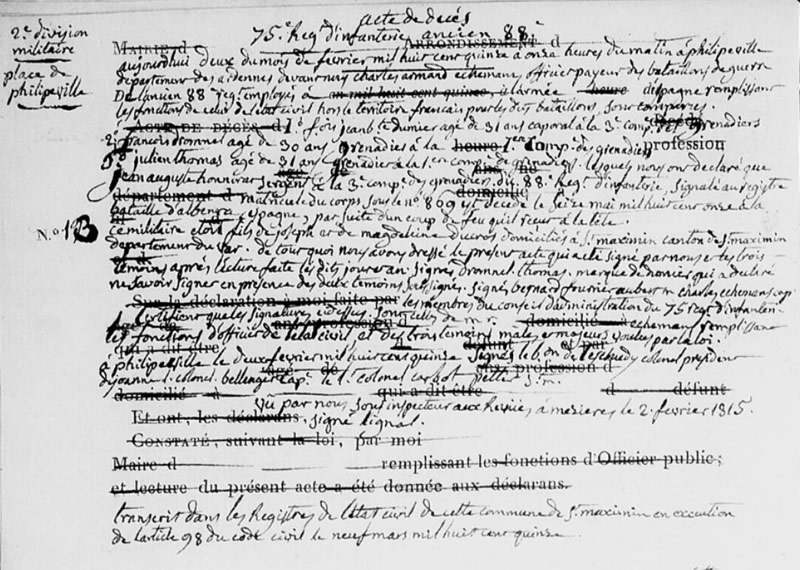 acte de decés
2e division
militaire
place de
philipeville
75e Regt d'infanterie ancien 88e
MAIRIE d ARRONDISSEMENT d
aujourdhui deux du mois de fevrier mil huit cent quinze a onze heures du matin a philipeville
departement des ardennes devant nous charles armand echemann officier payeur des bataillons de guerre
De l'ancien 88e regt employés a an mil huit cent quinze, à l'armée heure d'espagne remplissant
les fonctions de celui de l'etat civil hors le territoire francais pour les dits bataillons, sont comparus.
ACTE DE DÉCÈS d 1o jeanbte dumier agé de 31 ans caporal à la 3e compe des grenadiers
2o francois dromel agé de 30 ans grenadiers a la heure 1ere compe des grenadiers profession
3o julien thomas agé de 31 ans grenadier a la 1ere compe de grenadiers. lesquels nous ont declaré que
jean auguste honnorat sergent a la 3e compe des grenadiers du 88e Regt d'infanterie, signalé au registre
département d matricule du corps sous le no 869 est decedé le seize mai mil huit cent onze a la
domicilié
bataille d'albuera espagne, par suite d'un coup de feu qu'il recut a la tete.
No 13
ce militaire etoit fils de joseph et de magdeleine ducros domiciliés a St maximin canton de St maximin
departement du var. de tout quoi nous avons dressé le present acte qui a eté signé par nous et les trois
temoins aprés lecture faite les dits jour et an. signés dromel. thomas. marque de dumier qui a declaré
ne savoir signer en presence des deux temoins
Sur la déclaration à moi faite par les membres du conseil d'administration du 75e regt d'infanterie
certifient que les signatures ci dessus sont celles de mr echemann remplissant
domicilié à
les fonctions d'officier de l'etat civil et des trois temoins males et majeurs voulus par la loi.
a philipeville le deux fevrier mil huit cent quinze signés le bon de colonel president
profession d
domicilié à qui a dit être d défunt
Vu par nous sous inspecteur aux Revues a mezieres le 2 fevrier 1815.
Et ont, les déclarans, signé lignal.
CONSTATÉ, suivant la loi, par moi
Maire d remplissant les fonctions d'Officier public;
et lecture du présent acte a été donnée aux déclarans.
transcrit dans les Registres de l'etat civil de cette commune de St maximin en execution
de l'article 98 du code civil le neuf mars mil huit cent quinze.